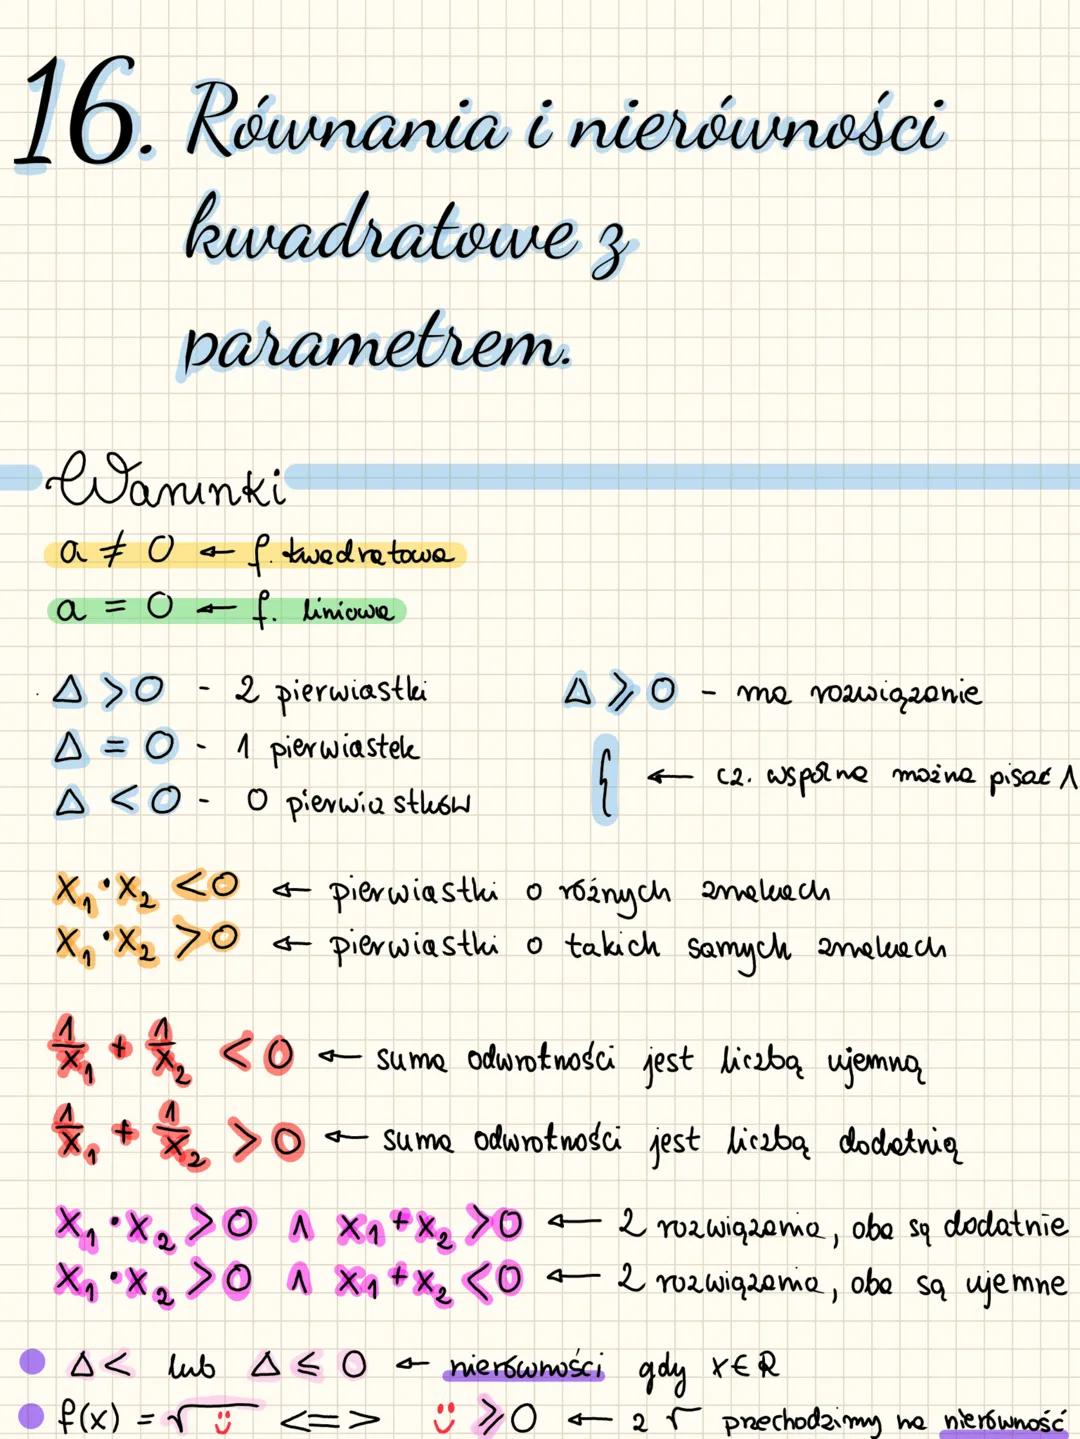 16. Równania i nierówności
kwadratowe z
parametrem.
Warunki
a ≠ 0 ← f. kwadratowa
a = 0 ← f. liniowa
Δ > 0 - 2 pierwiastki
Δ = 0 - 1 pierwiastek
Δ < 0 - 0 pierwiastków
Δ ⩾ 0 - ma rozwiązanie
{ ← cz. wspólna można pisać ∧
x₁ · x₂ < 0 ← pierwiastki o różnych znakach
x₁ · x₂ > 0 ← pierwiastki o takich samych znakach
1/x₁ + 1/x₂ < 0 ← suma odwrotności jest liczbą ujemną
1/x₁ + 1/x₂ > 0 ← suma odwrotności jest liczbą dodatnią
x₁ · x₂ > 0 ∧ x₁ + x₂ > 0 ← 2 rozwiązania, oba są dodatnie
x₁ · x₂ > 0 ∧ x₁ + x₂ < 0 ← 2 rozwiązania, oba są ujemne
Δ < lub Δ ⩽ 0 ← nierówności gdy x∈R
f(x) = √ <=> ⩾ 0 ← z √ przechodzimy na nierówność